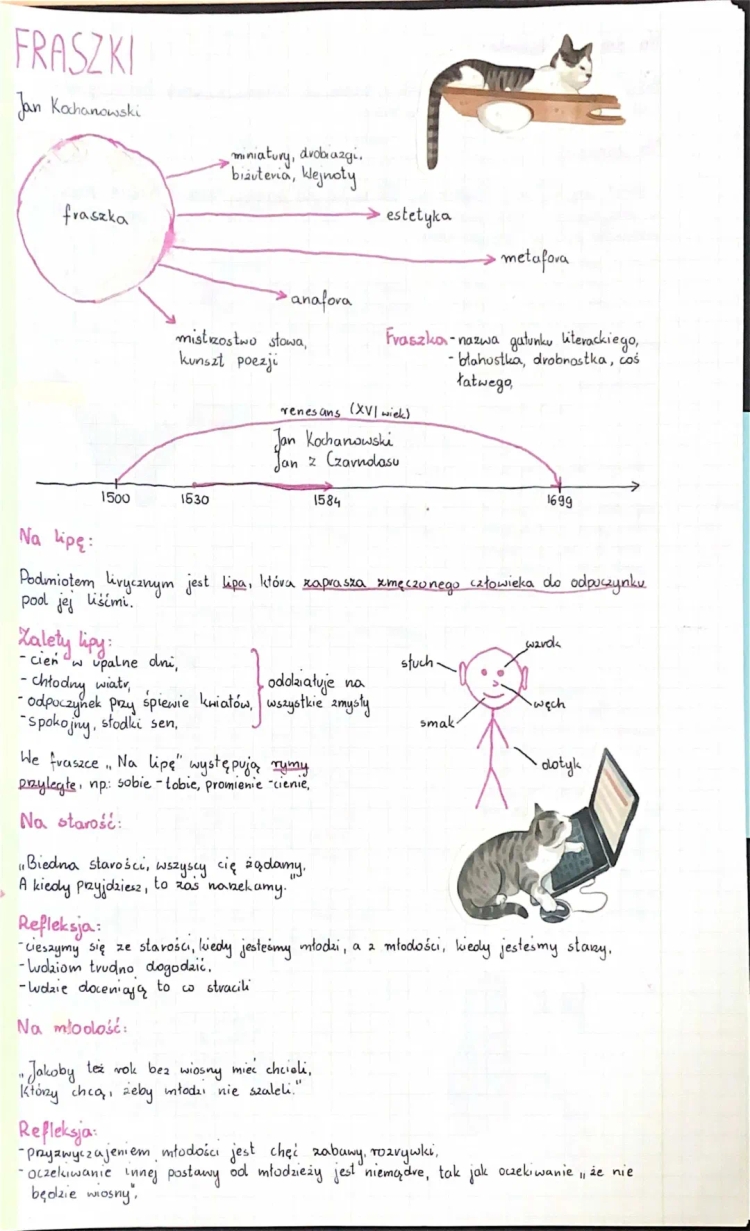 FRASZKI
Jan Kochanowski
fraszka
miniatury, drobiazgi,
biżuteria, klejnoty
estetyka
metafora
anafora
mistrzostwo słowa,
kunszt poezji
Fraszka - nazwa gatunku literackiego,
- błahostka, drobnostka, coś
łatwego,
renesans (XVI wiek)
Jan Kochanowski
Jan z Czarnolasu
1500 1530 1584 1699
Na lipę:
Podmiotem lirycznym jest lipa, która zaprasza zmęczonego człowieka do odpoczynku
pod jej liśćmi.
Zalety lipy:
- cień w upalne dni,
- chłodny wiatr,
- odpoczynek przy śpiewie kwiatów,
- spokojny, słodki sen,
oddziałuje na
wszystkie zmysły
wzrok
słuch
węch
smak
dotyk
We fraszce „Na lipę" występują rymy
przyległe, np.: sobie - tobie, promienie - cienie,
Na starość:
„Biedna starości, wszyscy cię żądamy,
A kiedy przyjdziesz, to zaś narzekamy."
Refleksja:
- cieszymy się ze starości, kiedy jesteśmy młodzi, a z młodości, kiedy jesteśmy starzy,
- ludziom trudno dogodzić,
- ludzie doceniają to co stracili
Na młodość:
„Jakoby też rok bez wiosny mieć chcieli,
Którzy chcą, żeby młodzi nie szaleli."
Refleksja:
- przyzwyczajeniem młodości jest chęć zabawy, rozrywki,
- oczekiwanie innej postawy od młodzieży jest niemądre, tak jak oczekiwanie „że nie
będzie wiosny",